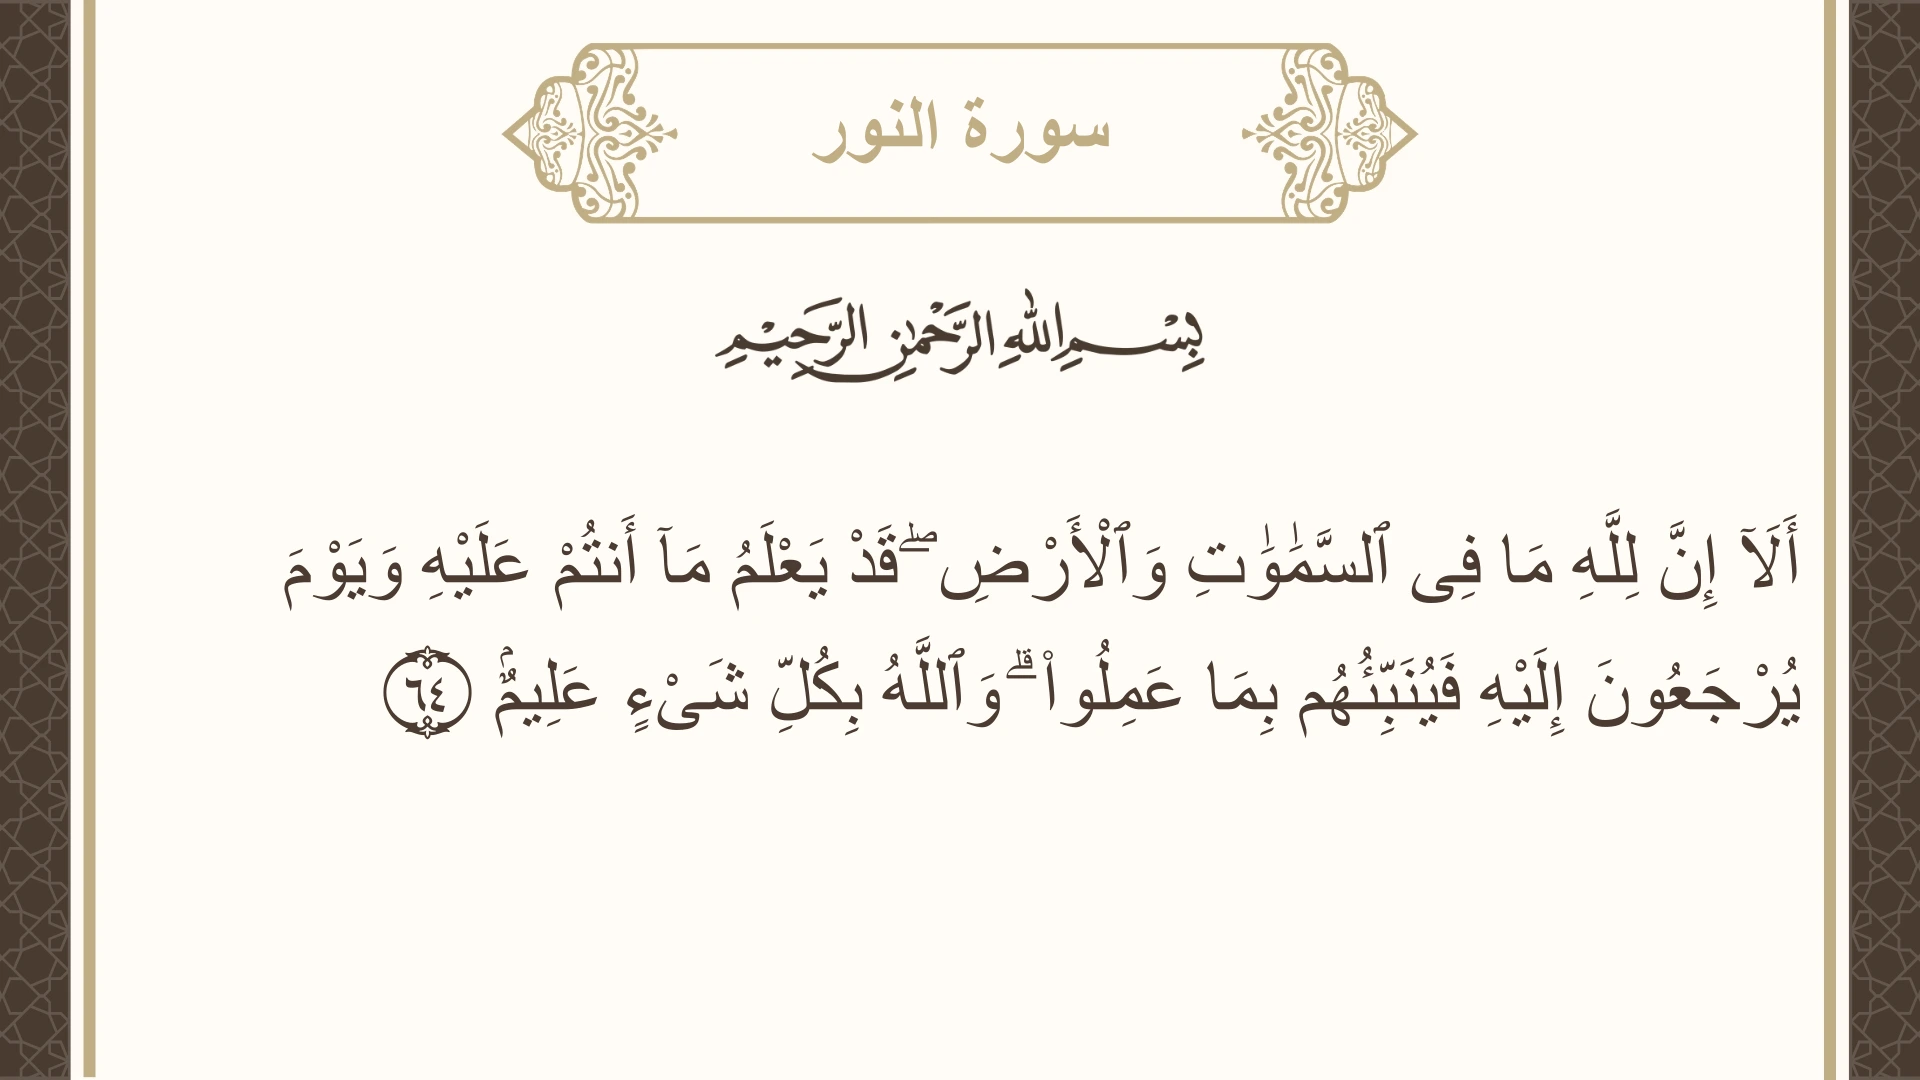 سورة النور
بِسْمِ اللهِ الرَّحْمٰنِ الرَّحِيْمِ
أَلَآ إِنَّ لِلَّهِ مَا فِى ٱلسَّمَٰوَٰتِ وَٱلْأَرْضِ ۖ قَدْ يَعْلَمُ مَآ أَنتُمْ عَلَيْهِ وَيَوْمَ
يُرْجَعُونَ إِلَيْهِ فَيُنَبِّئُهُم بِمَا عَمِلُوا۟ ۗ وَٱللَّهُ بِكُلِّ شَىْءٍ عَلِيمٌۢ ٦٤